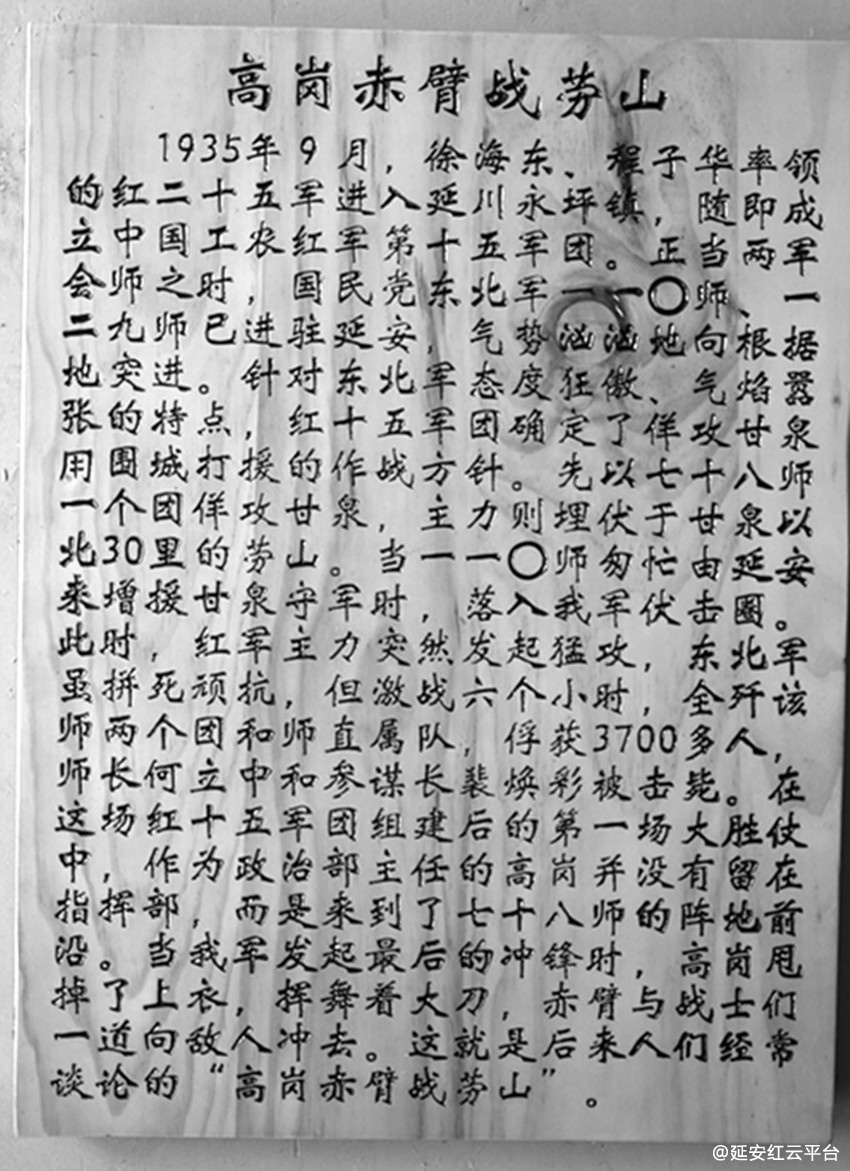 高岗赤臂战劳山
1935年9月,徐海东、程子华率领
的红二十五军进入延川永坪镇,随即成
立中国工农红军第十五军团。正当两军
会师之时,国民党东北军一一〇师、一
二九师已进驻延安,气势汹汹地向根据
地突进。针对东北军态度狂傲、气焰嚣
张的特点,红十五军团确定了佯攻甘泉
用围城打援的作战方针。先以七十八师
一个团佯攻甘泉,主力则埋伏于甘泉以
北30里的劳山。当一一〇师匆忙由延安
来增援甘泉守军时,落入我军伏击圈。
此时,红军主力突然发起猛攻,东北军
虽拼死顽抗,但激战六个小时,全歼该
师两个团和师直属队,俘获3700多人,
师长何立中和参谋长裴焕彩被击毙。在
这场红十五军团组建后的第一场大胜仗
中,作为政治部主任的高岗并没有留在
指挥部,而是来到了七十八师的阵地前
沿。当我军发起最后的冲锋时,高岗甩
掉了上衣,挥舞着大刀,赤臂与战士们
一道向敌人冲去。这就是后来人们经常
谈论的“高岗赤臂战劳山”。
@延安红云平台